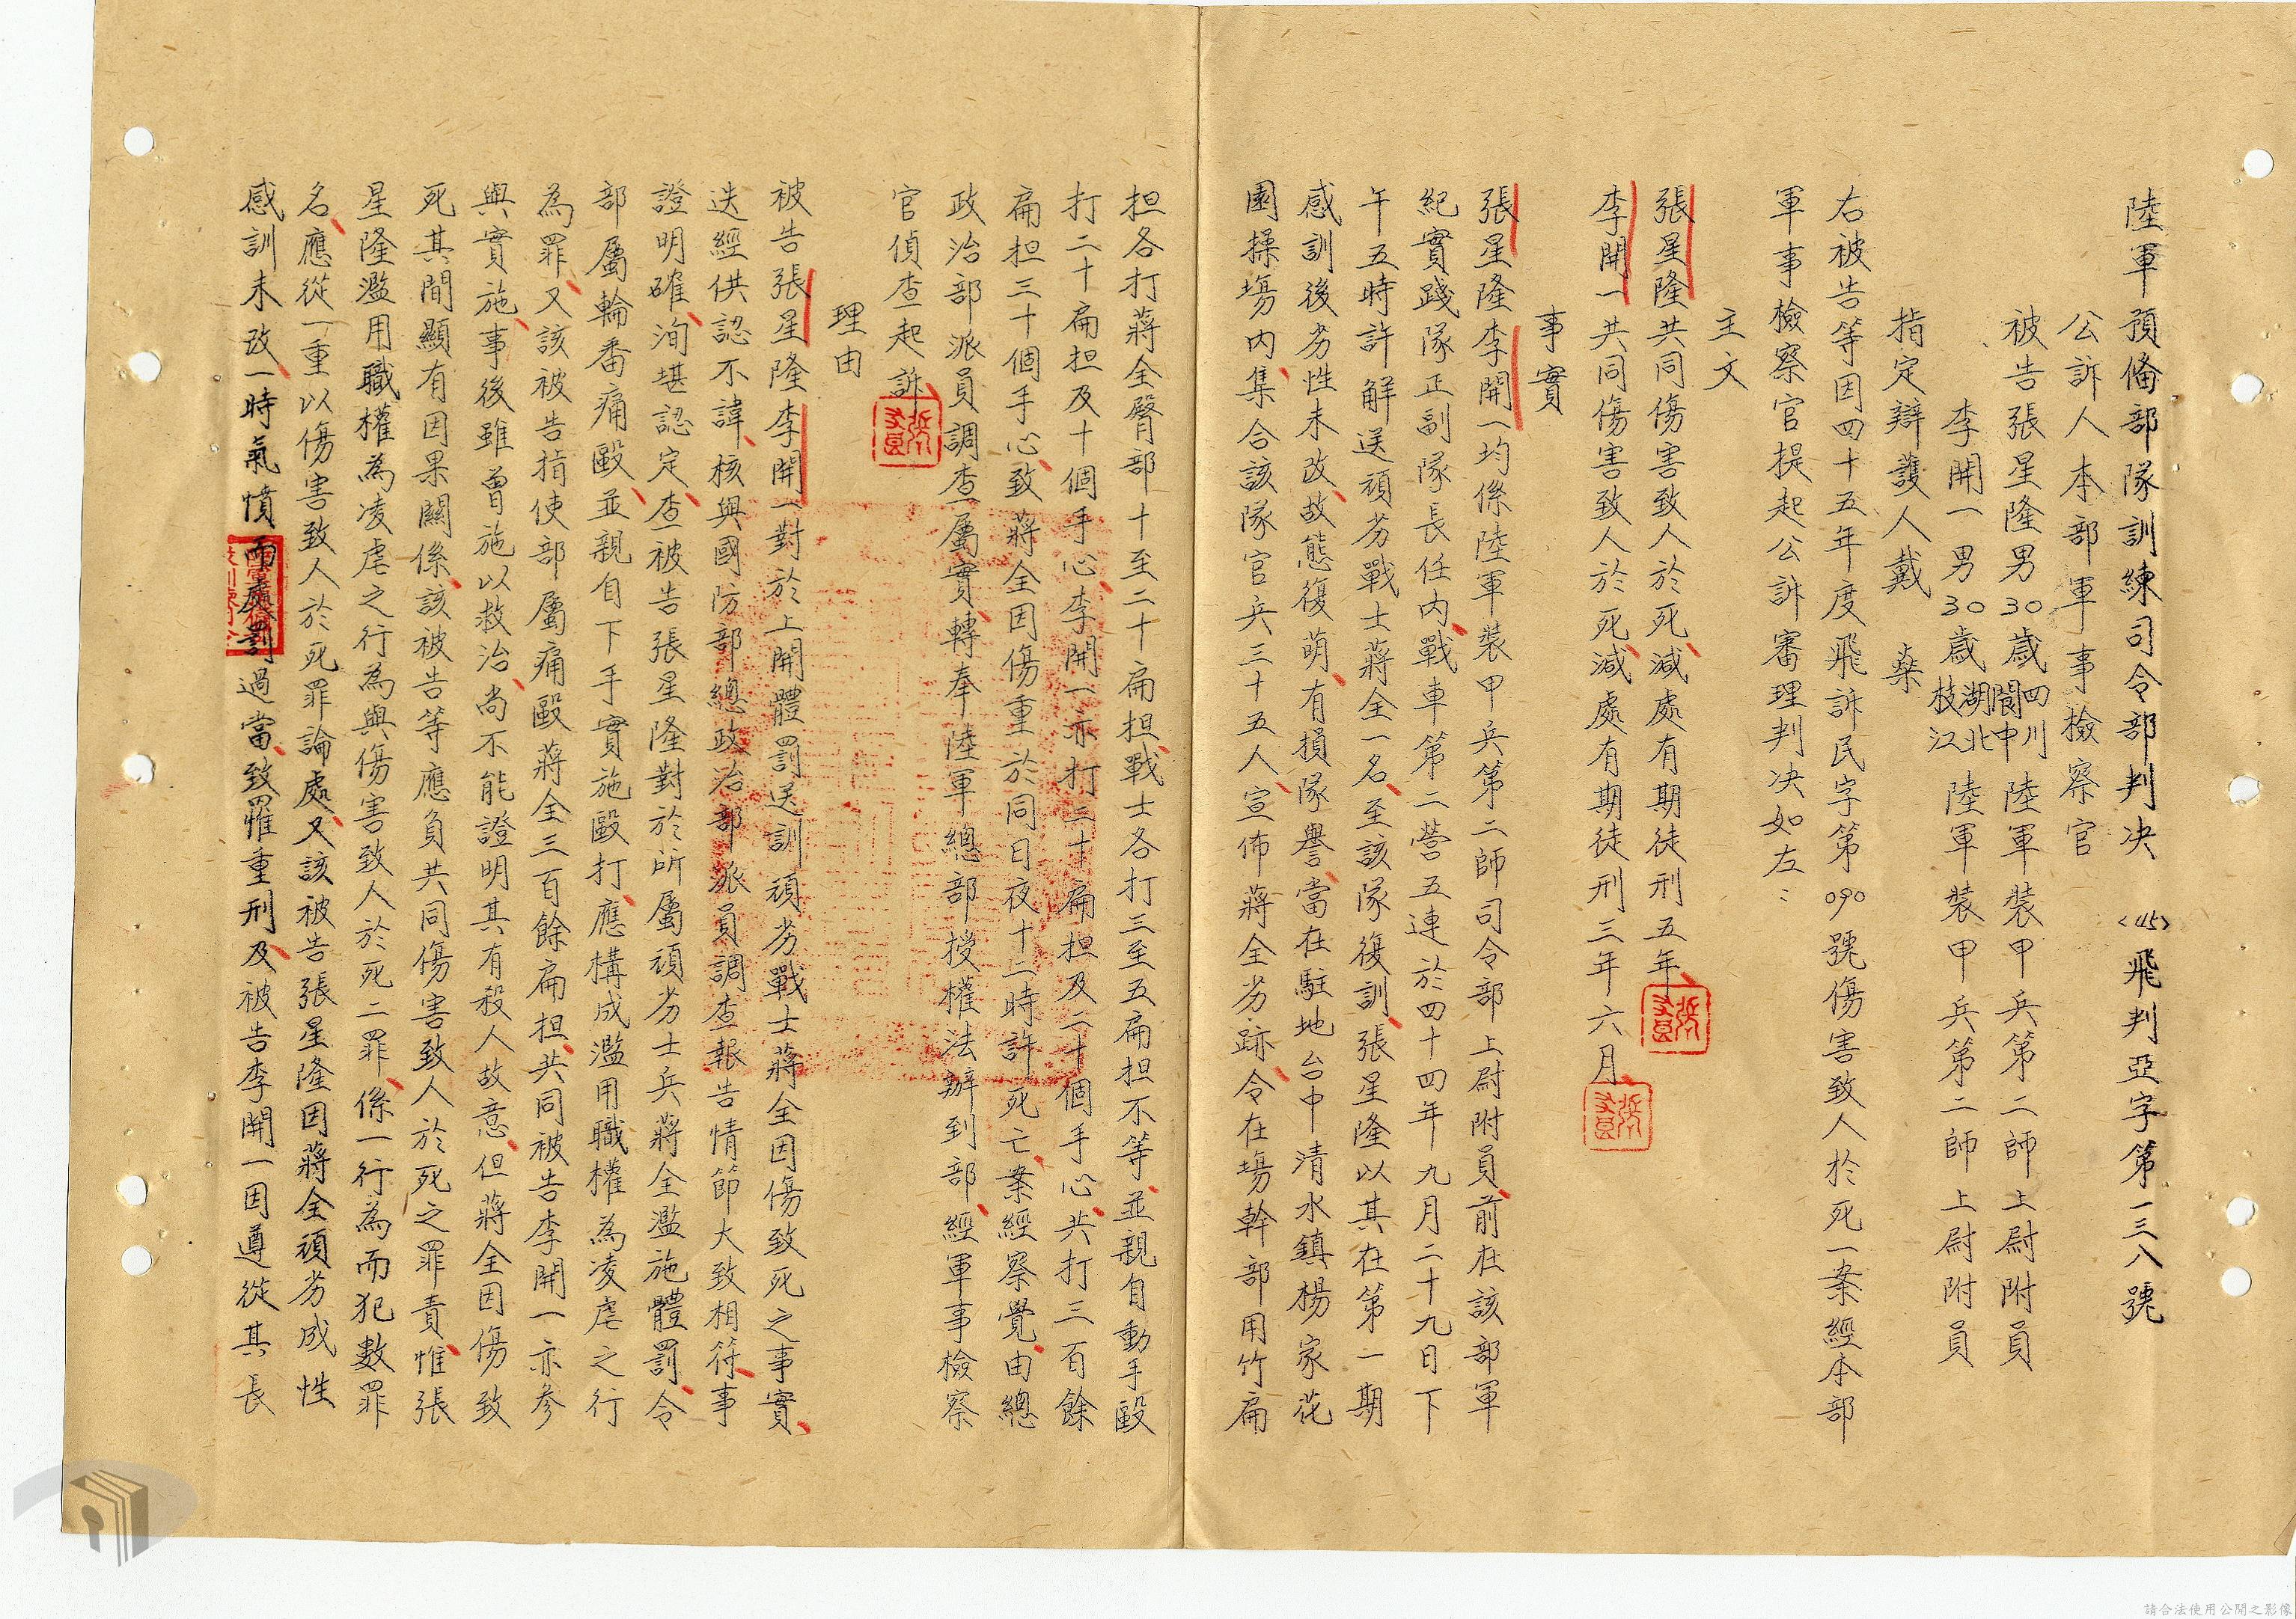 陸軍預備部隊訓練司令部判決　<45>飛判亞字第一三八號
公訴人本部軍事檢察官
被告張星隆男30歲四川閬中陸軍裝甲兵第二師上尉附員
李開一男30歲湖北枝江陸軍裝甲兵第二師上尉附員
指定辯護人戴　燊
右被告等因四十五年度飛訴民字第090號傷害致人於死一案經本部
軍事檢察官提起公訴審理判決如左：
主文
張星隆共同傷害致人於死、減處有期徒刑五年、
李開一共同傷害致人於死、減處有期徒刑三年六月、
事實
張星隆李開一均係陸軍裝甲兵第二師司令部上尉附員、前在該部軍
紀實踐隊正副隊長任內、戰車第二營五連於四十四年九月二十九日下
午五時許解送頑劣戰士蔣全一名、至該隊復訓、張星隆以其在第一期
感訓後劣性未改、故態復萌、有損隊譽、當在駐地台中清水鎮楊家花
園操場內、集合該隊官兵三十五人、宣佈蔣全劣跡、令在場幹部用竹扁
担各打蔣全臀部十至二十扁担、戰士各打三至五扁担不等、並親自動手毆
打二十扁担及十個手心、李開一亦打三十扁担及二十個手心、共打三百餘
扁担三十個手心、致蔣全因傷重於同日夜十二時許死亡、案經察覺、由總
政治部派員調查屬實、轉奉陸軍總部授權法辦到部、經軍事檢察
官偵查起訴、
理由
被告張星隆李開一對於上開體罰送訓頑劣戰士蔣全因傷致死之事實、
迭經供認不諱、核與國防部總政治部派員調查報告情節大致相符、事
證明確、洵堪認定、查被告張星隆對於所屬頑劣士兵蔣全濫施體罰、令
部屬輪番痛毆、並親自下手實施毆打、應構成濫用職權為凌虐之行
為罪、又該被告指使部屬痛毆蔣全三百餘扁担、共同被告李開一亦參
與實施、事後雖曾施以救治、尚不能證明其有殺人故意、但蔣全因傷致
死其間顯有因果關係、該被告等應負共同傷害致人於死之罪責、惟張
星隆濫用職權為凌虐之行為與傷害致人於死二罪、係一行為而犯數罪
名、應從一重以傷害致人於死罪論處、又該被告張星隆因蔣全頑劣成性
感訓未改、一時氣憤而處罰過當、致罹重刑、及被告李開一因遵從其長
請合法使用公開之影像